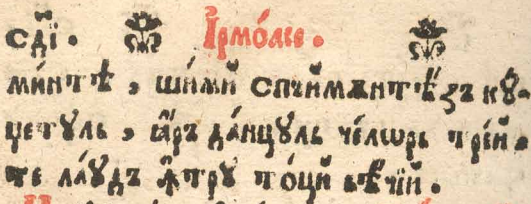 сд҃і. І҆рмо́лїе.
ми́нтѣ, шѝмй спъй мѫнтѣ́ѕъ кꙋ́-
цетꙋль, ꙗ҆́ръ да́нцꙋль че́лѡрь тре́й.
те ла́ꙋдъ ꙟ҆́трꙋ то́цй вѣ́чїй.